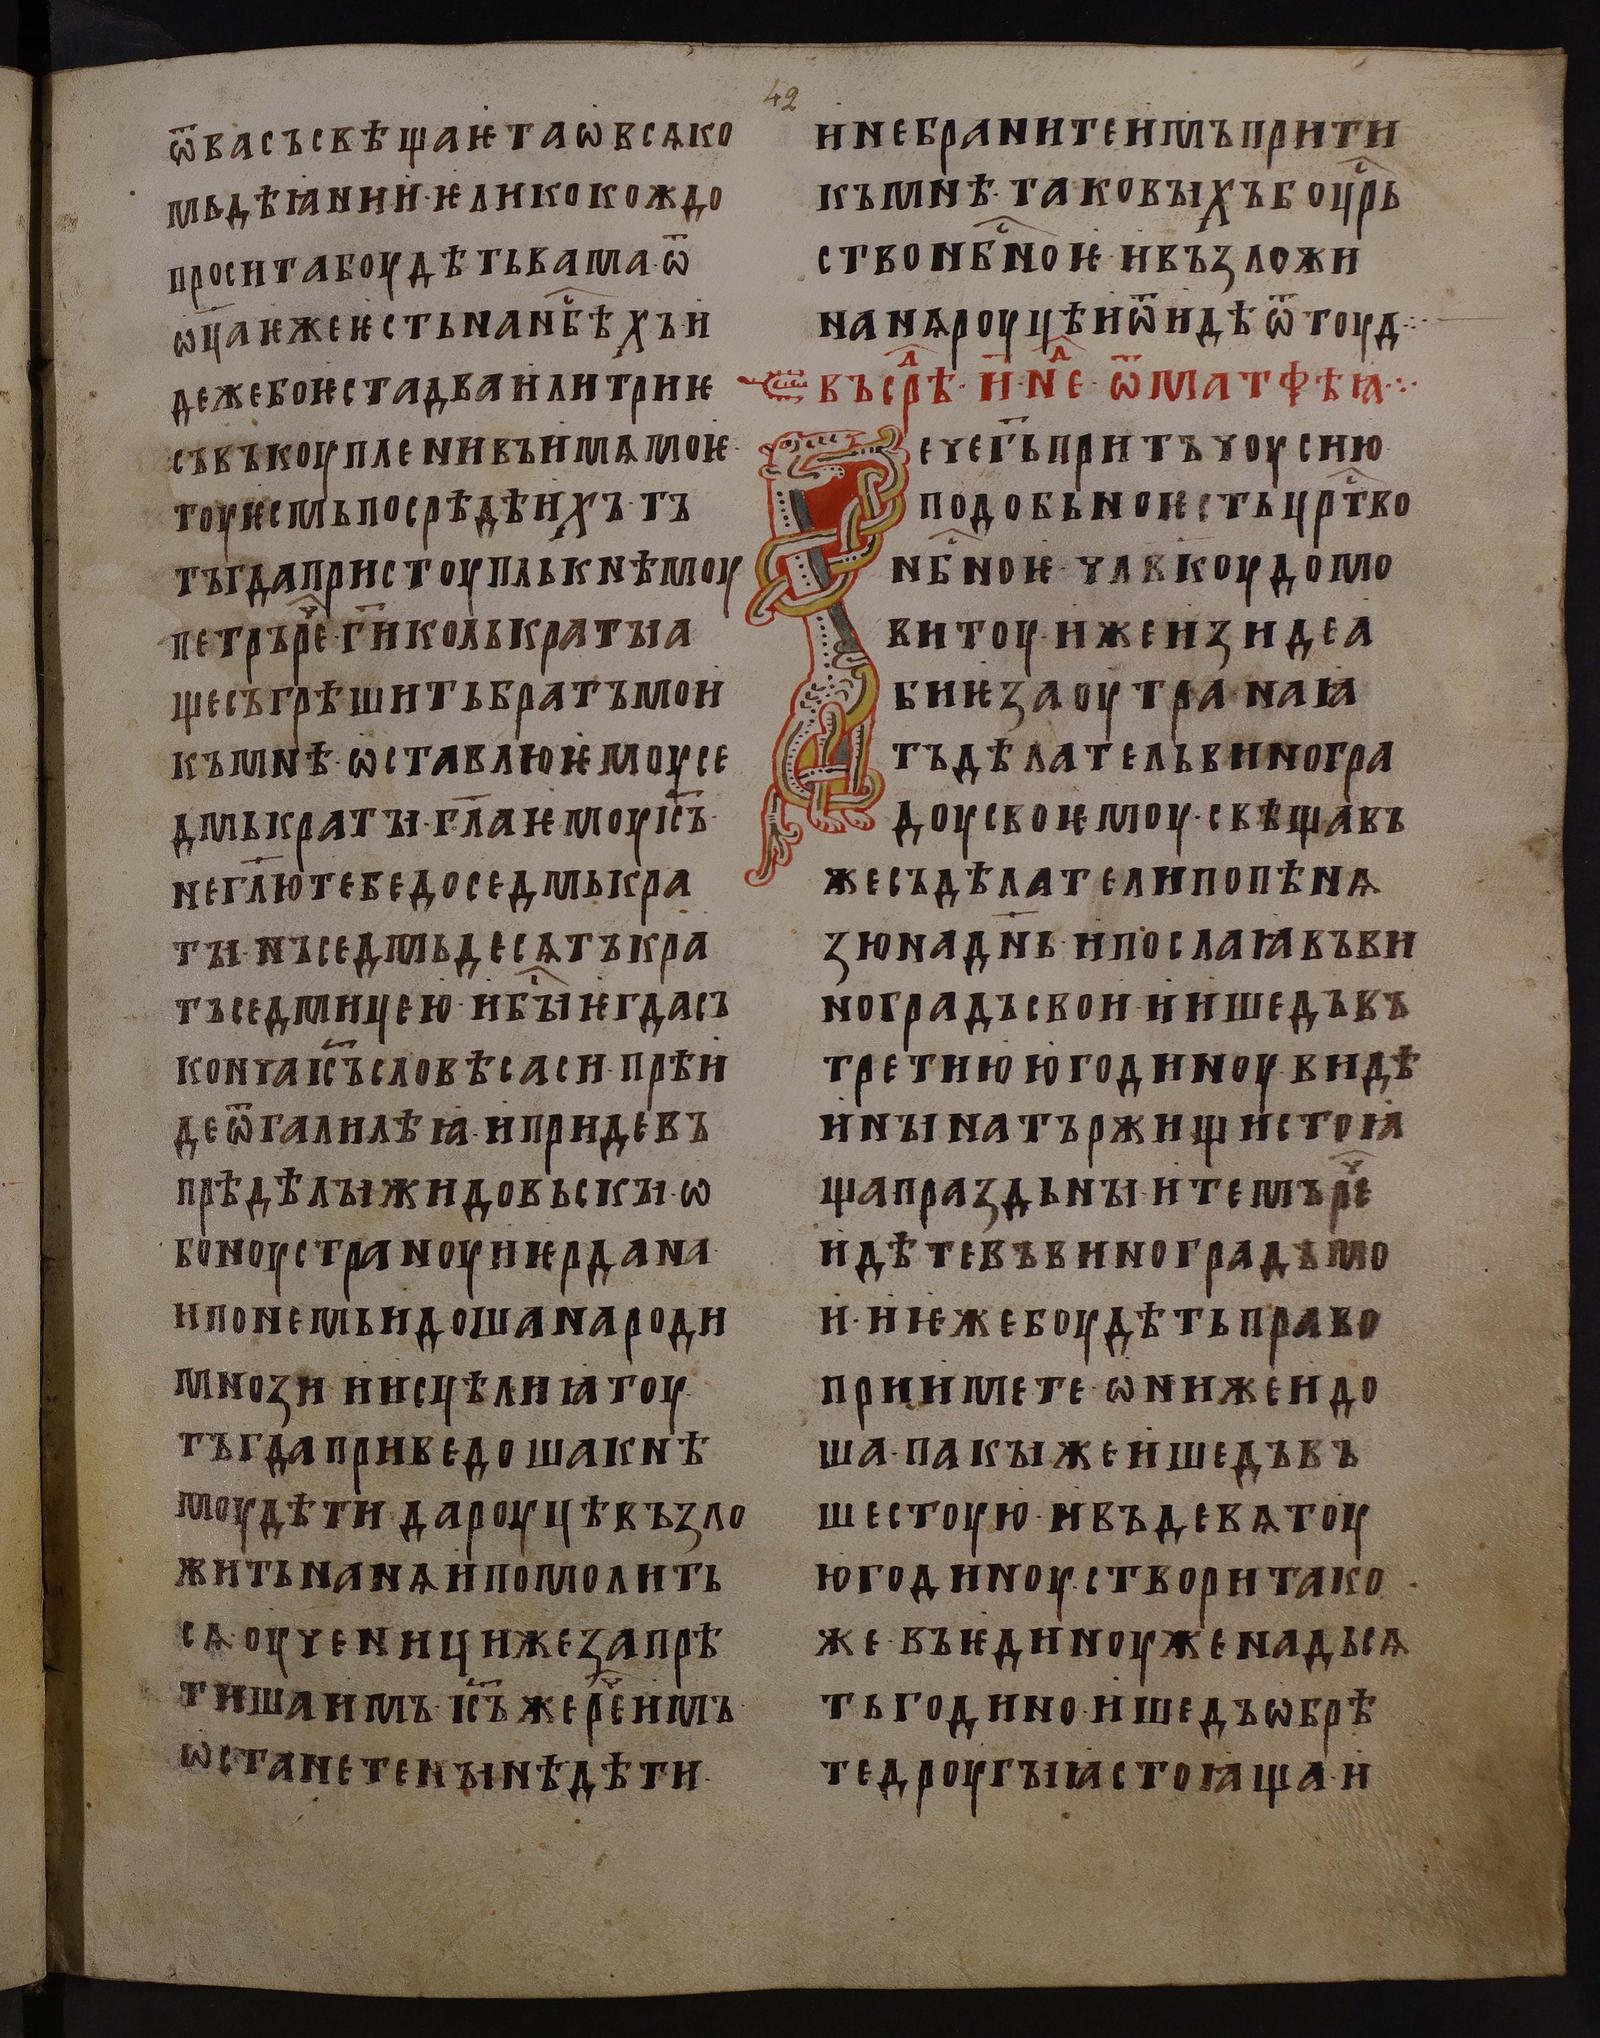 42
ѿвасъсвѣщаѥтаѡвсѧко
мьдѣꙗнии·ѥликокождо
проситабоудѣтьвама·ѿ
ѡц҃аѥжеѥстьнан҃бсѣхъ·и
дежебоѥстадваилитриѥ
съвъкоуплениивъимѧмоѥ·
тоуѥсмьпосрѣдѣихъ·тъ
тъгдапристоупльк нѣмоу
петръре҃ч·г҃иколькратыа
щесъгрѣшитьбратъмои
къмнѣ·ѡставлюѥмоусе
дмькраты·гл҃аѥмоуіс҃ъ·
негл҃ютебедоседмькра
ты·нъседмьдесѧтъкра
тъседмицею·иб҃ыѥгдасъ
коньчаіс҃ъсловѣсаси·прѣи
деѿгалилѣꙗ·ипридевъ
прѣдѣлыжидовьскы·ѡ
боноустраноуиѥрдана
ипонемьидошанароди
мнози иисцѣлиꙗтоу·
тъгдаприведошакнѣ
моудѣти дароуцѣвъзло
житьнанѧипомолить
сѧ·оученицижезапрѣ
тишаимъ·іс҃ъжере҃чимъ·
ѡстанетенынѣдѣти·
инебранитеимъприти
къмнѣ·таковыхъбоцр҃ь
ствонб҃сноѥ·ивъзложи
нанѧроуцѣиѿидѣѿтоуд·:·
въср҃ѣд·н҃·нед҃·ѿматфѣꙗ·:·
ечег҃ьпритъчоусию
подобьноѥстьцрт҃во
нб҃сноѥ·чл҃вкоудомо
витоу·ижеизидеа
биѥзаоутранаꙗ
тъдѣлательвиногра
доусвоѥмоу·свѣщавъ
жесъдѣлателипопѣнѧ
зюнадн҃ь·ипослаꙗвъви
ноградъсвои·иишедъвъ
третиююгодиноу·видѣ
инынатържищистоꙗ
щапраздьны·итемъре҃ч
идѣтевъвиноградъмо
и·иѥжебоудѣтьправо
приимете·ѡнижеидо
ша·пакыжеишедъвъ
шестоую·ивъдевѧтоу
югодиноу·створитако
же·въѥдиноуженадьсѧ
тьгодино·ишедъѡбрѣ
тедроугыꙗстоꙗща·и